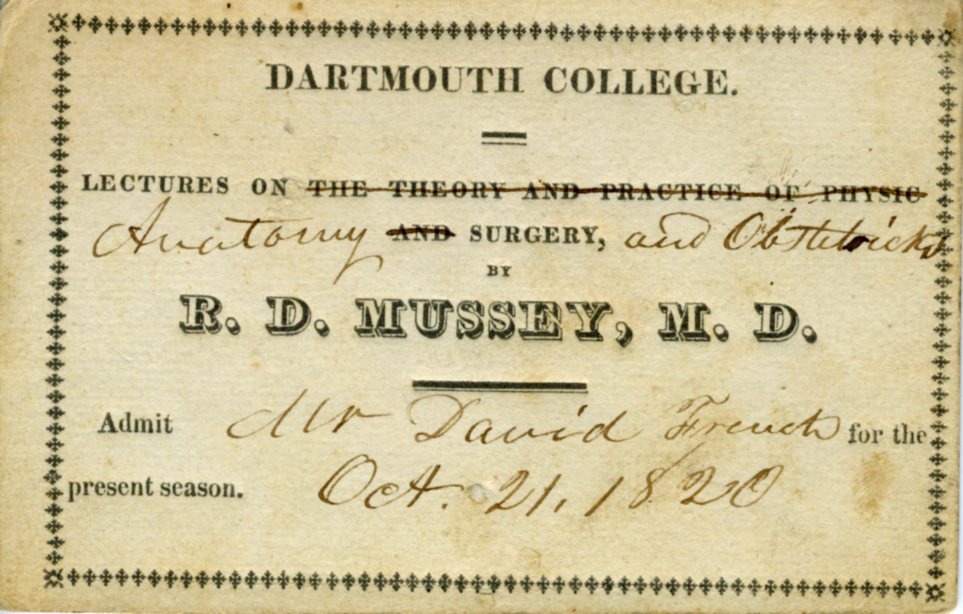 DARTMOUTH COLLEGE.
LECTURES ON THE THEORY AND PRACTICE OF PHYSIC
Anatomy AND SURGERY, and Obstetricks
BY
R. D. MUSSEY, M. D.
Admit Mr David French for the
present season. Oct. 21, 1820